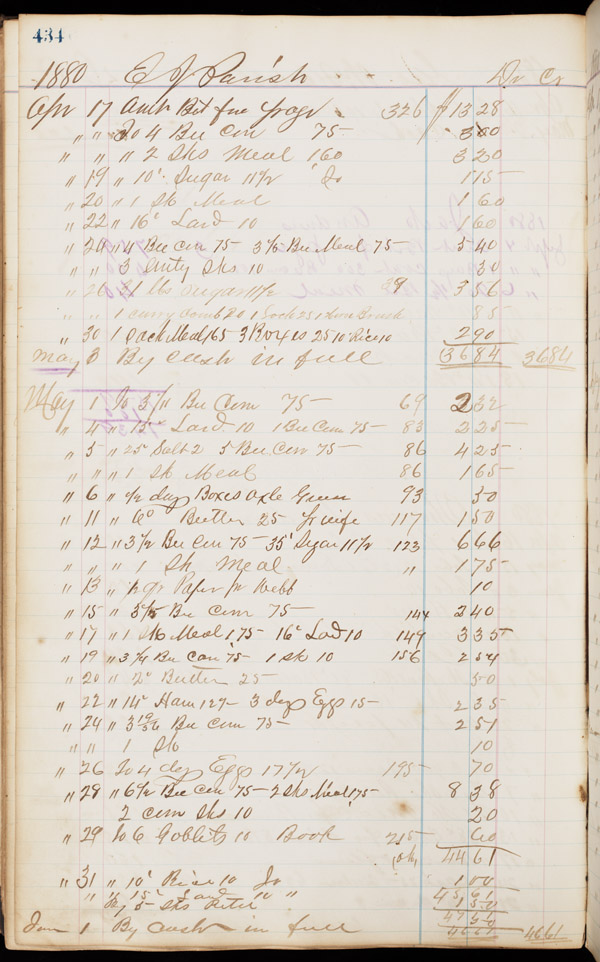 434
1880 E J Parish Dr Cr
Apr 17 Amt Bot fro page 326 13 28
" " To 4 Bu Corn 75 3 00
" " " 2 Sks Meal 160 3 20
" 19 " 10 Sugar 11½ Jo 1 15
" 20 " 1 Sk Meal 1 60
" 22 " 16 Lard 10 1 60
" 75 Bu Meal 75 5 40
" " " 3 Sks 10 30
lbs Sugar 11½ 39 3 56
1 Curry Comb 20 1 25 1 85
" 30 1 Sack Meal 165 3 Boxes 25 10 Rice 10 2 90
May 3 By Cash in full 36 84 36 84
May 1 To Bu Corn 75 69 2 32
" 4 " Lard 10 1 Bu Corn 75 83 2 25
" 5 " 25 Salt 2 5 Bu Corn 75 86 4 25
" " " 1 Sk Meal 86 1 65
" 6 " doz Boxes Axle Grease 93 50
" 11 " 6 Butter 25 pr wife 117 1 50
" 12 " 3½ Bu Corn 75 35 Sugar 11½ 123 6 66
" " " 1 Sk Meal " 1 75
" 13 " Paper pr Webb 10
" 15 " Bu Corn 75 144 2 40
" 17 " 1 Sk Meal 175 16 Lard 10 149 3 35
" 19 " Bu Corn 75 1 Sk 10 156 2 54
" 20 " 2 Butter 25 50
" 22 " 14 Ham 12½ 3 doz Eggs 15 2 35
" 24 " Bu Corn 75 2 51
" " 1 Sk 10
" 26 To 4 doz Eggs 17½ 195 70
" 28 " 6½ Bu Corn 75 2 Sks Meal 175 8 38
2 Corn Sks 10 20
" 29 To 6 Goblets 10 Book 215 60
44 61
" 31 " 10 Rice 10 Jo 1 00
" " " 15 Lard 10 " 
By 5 Sks
Jun 1 By Cash in full 46 61